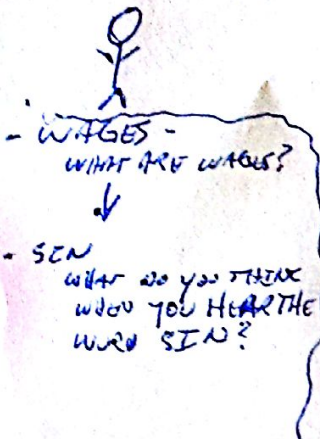 - WAGES -
WHAT ARE WAGES?
- SIN
WHAT DO YOU THINK
WHEN YOU HEAR THE
WORD SIN?